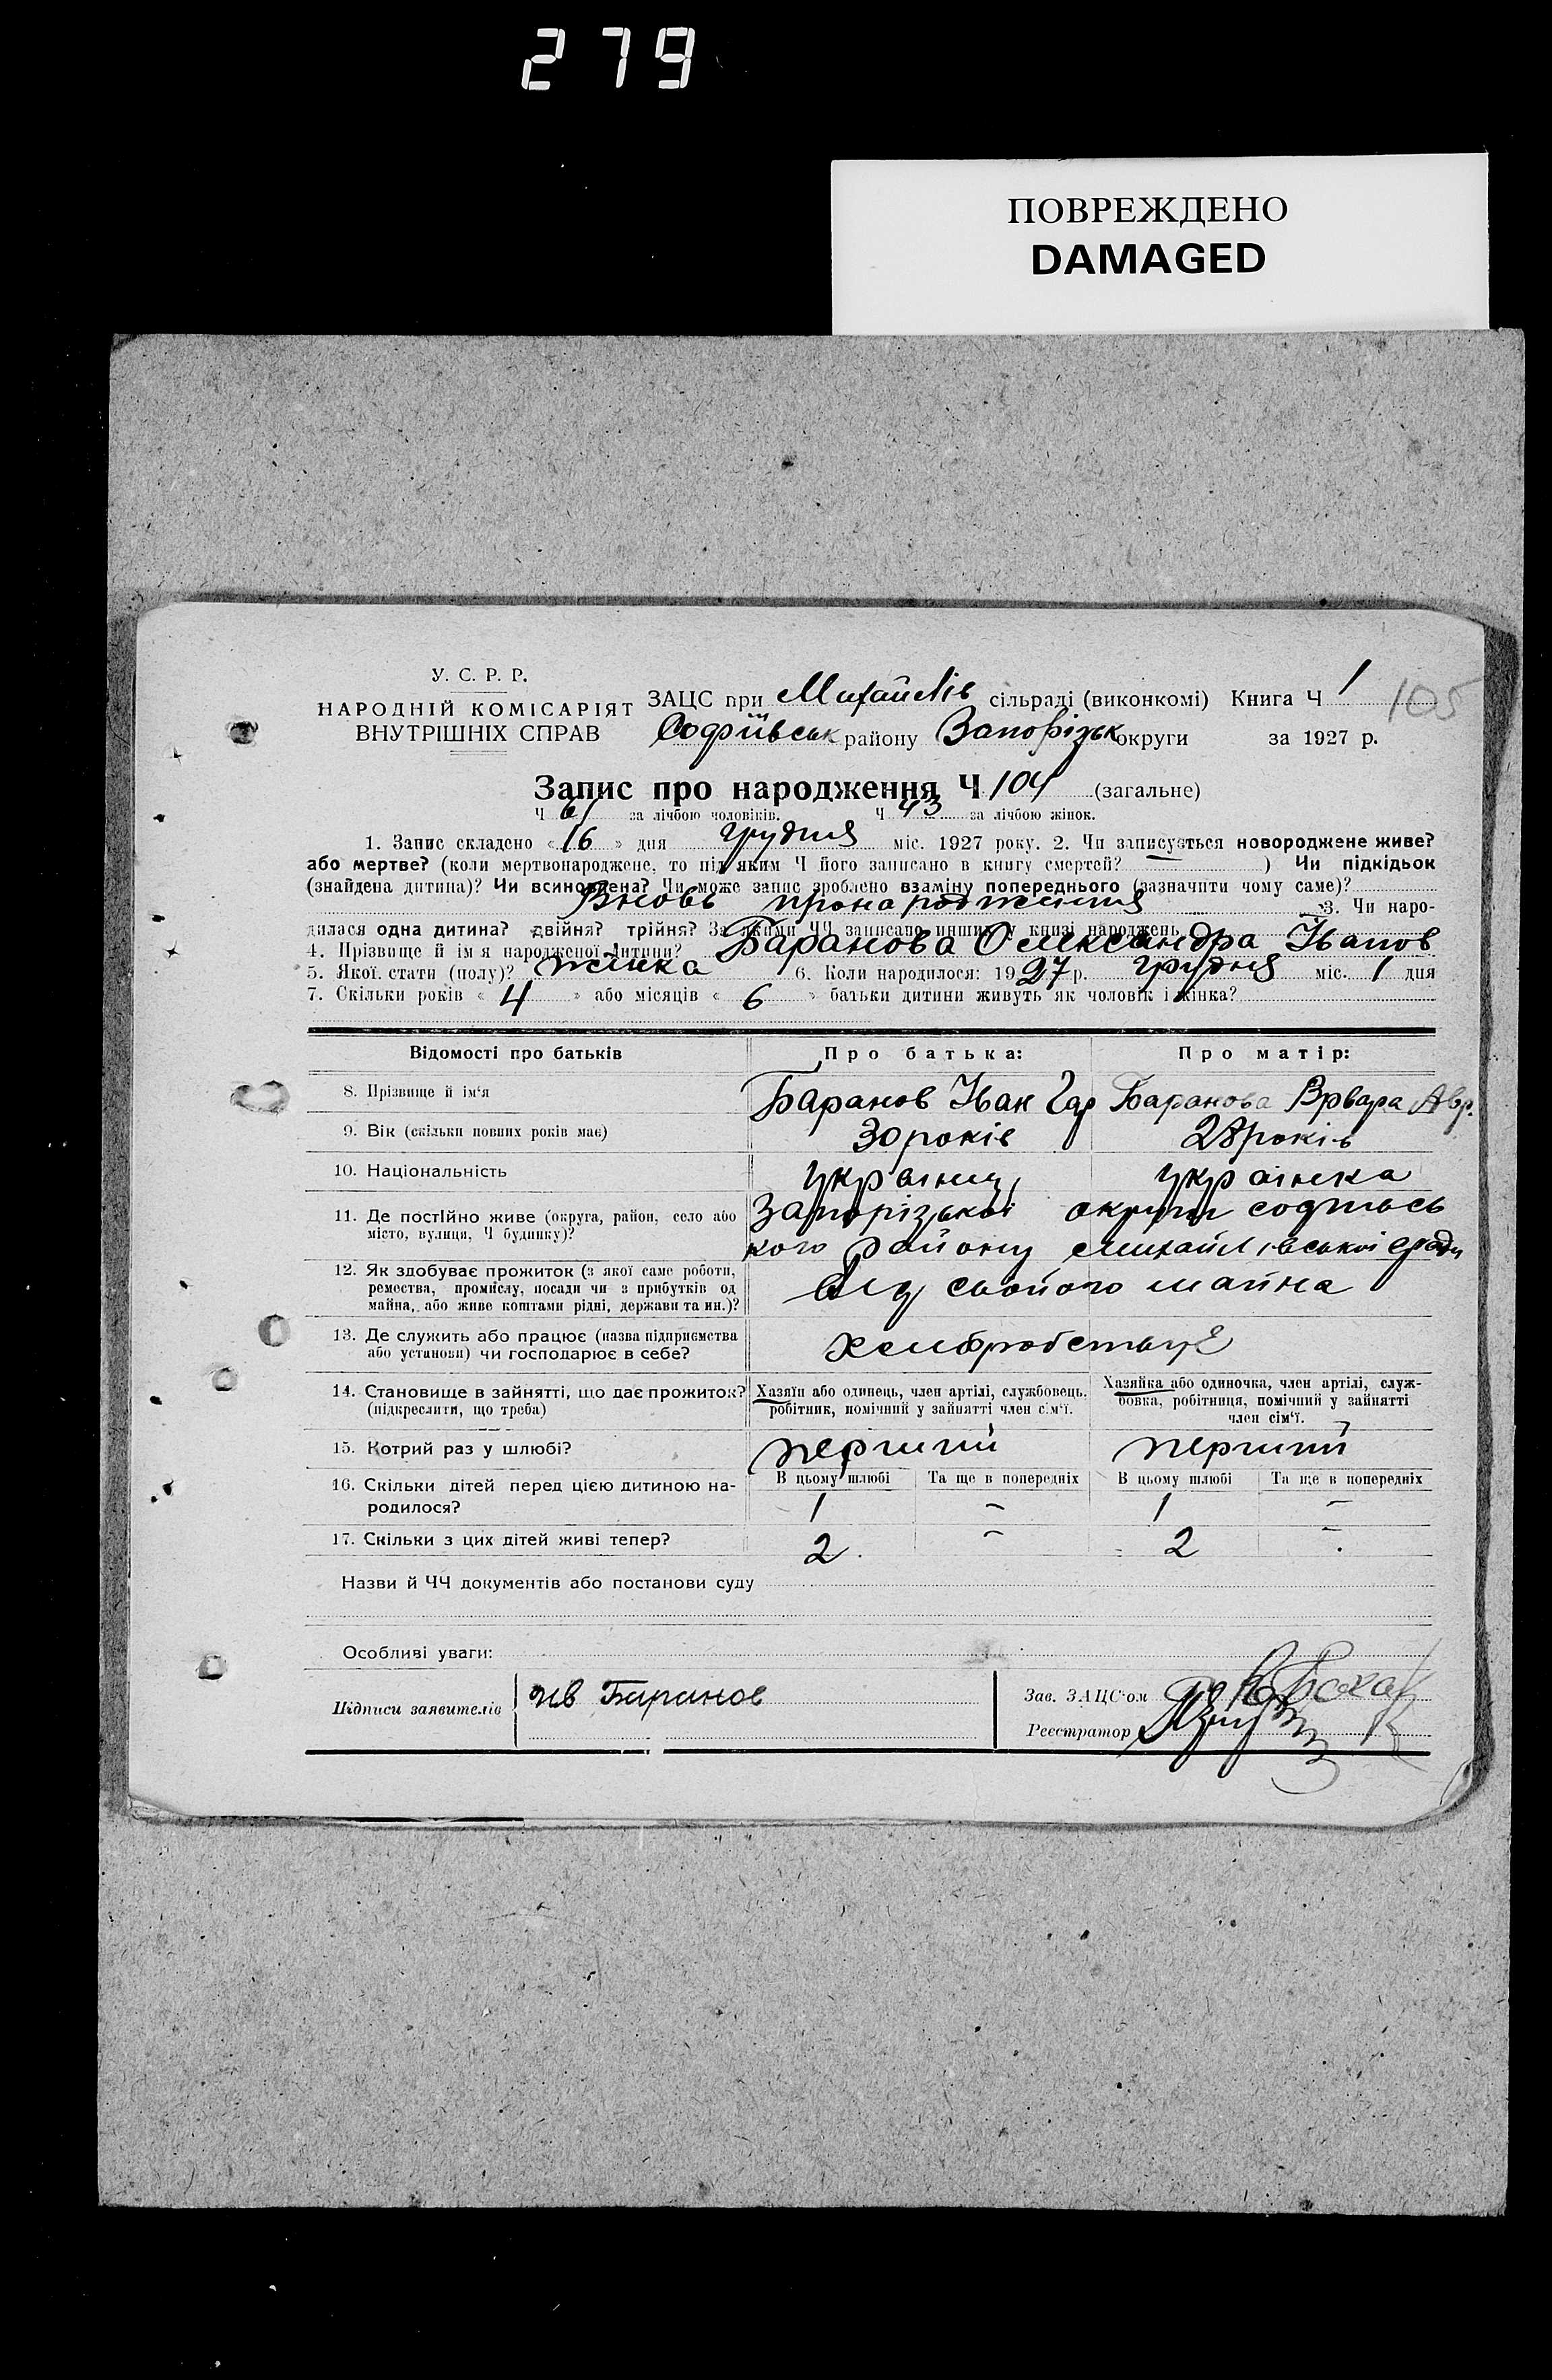 279
ПОВРЕЖДЕНО
DAMAGED
У. С. Р. Р.
НАРОДНІЙ КОМІСАРІЯТ
ВНУТРІШНІХ СПРАВ
ЗАЦС при Михайлів сільраді (виконкомі) Книга Ч 1 105
Софіївськ району Запорізьк округи за 1927 р.
Запис про народження Ч 104 (загальне)
Ч 61 за лічбою чоловіків. Ч 43 за лічбою жінок.
1. Запис складено «16» дня грудня міс. 1927 року. 2. Чи записується новороджене живе?
або мертве? (коли мертвонароджене, то під яким Ч його записано в книгу смертей? —) Чи підкідьок
(знайдена дитина)? Чи всиновлена? Чи може запис зроблено взаміну попереднього (зазначити чому саме)?
Вновь про народження 3. Чи наро-
дилася одна дитина? двійня? трійня? За якими ЧЧ записано инших у книзі народжень
4. Прізвище й ім'я народженої дитини? Баранова Олександра Іванов
5. Якої стати (полу)? жінка 6. Коли народилося: 1927 р. грудня міс. 1 дня
7. Скільки років «4» або місяців «6» батьки дитини живуть як чоловік і жінка?
Відомості про батьків Про батька: Про матір:
8. Прізвище й ім'я Баранов Іван Гар Баранова Врвара Авр.
9. Вік (скільки повних років має) 30 років 28 років
10. Національність украінец украінка
11. Де постійно живе (округа, район, село або
місто, вулиця, Ч будинку)?
Запорізької округи
кого району Михайлівської с/ради
12. Як здобуває прожиток (з якої саме роботи,
ремества, промислу, посади чи з прибутків од
майна, або живе коштами рідні, держави та ин.)?
від свойого майна
13. Де служить або працює (назва підприємства
або установи) чи господарює в себе?
14. Становище в зайнятті, що дає прожиток?
(підкреслити, що треба)
Хазяїн або одинець, член артілі, службовець.
робітник, помічний у зайнятті член сім'ї.
Хазяйка або одиночка, член артілі, служ-
бовка, робітниця, помічний у зайнятті
член сім'ї.
15. Котрий раз у шлюбі? перший перший
16. Скільки дітей перед цією дитиною на-
родилося?
В цьому шлюбі Та ще в попередніх В цьому шлюбі Та ще в попередніх
1 - 1 -
17. Скільки з цих дітей живі тепер? 2 - 2 -
Назви й ЧЧ документів або постанови суду
Особливі уваги:
Підписи заявителів Ив Баранов
Зав. ЗАЦС'ом
Реєстратор